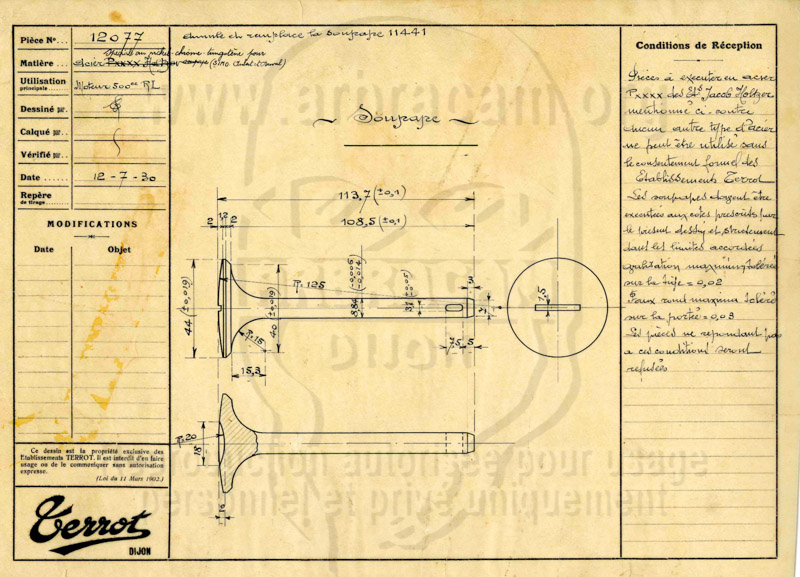 Pièce No... 12077
annule et remplace la soupape 11441
spéciale au nickel-chrome-tungstène pour
Matière... acier Pxxxx Holtzer soupape
Utilisation
principale... Moteur 500cc RL
Dessiné par.
Calqué par..
Vérifié par..
Date ...... 12-7-30
Repère
de tirage......
MODIFICATIONS
Date Objet
~ Soupape ~
113,7 (±0,1)
108,5 (±0,1)
12 1,2 12
R. 125
8,84 (-0,006 -0,014)
31 (±0,05)
3
44 (±0,019)
40 (±0,019)
R. 15
15,3
7,5 5
1,5
R. 20
18
Conditions de Réception
Pièces à exécuter en acier
Pxxxx des Ets Jacob Holtzer
mentionné ci-contre
Aucun autre type d'acier
ne peut être utilisé sans
le consentement formel des
Etablissements Terrot
Les soupapes devront être
exécutées aux côtes prescrites par
le présent dessin et strictement
dans les limites accordées
ovalisation maximum tolérée
sur la tige = 0,02
Faux rond maxima toléré
sur la portée = 0,03
Les pièces ne répondant pas
a ces conditions seront
refusées
Ce dessin est la propriété exclusive des
Etablissements TERROT. Il est interdit d'en faire
usage ou de le communiquer sans autorisation
expresse.
(Loi du 11 Mars 1902.)
Terrot
DIJON
Reproduction autorisée pour usage
personnel et privé uniquement